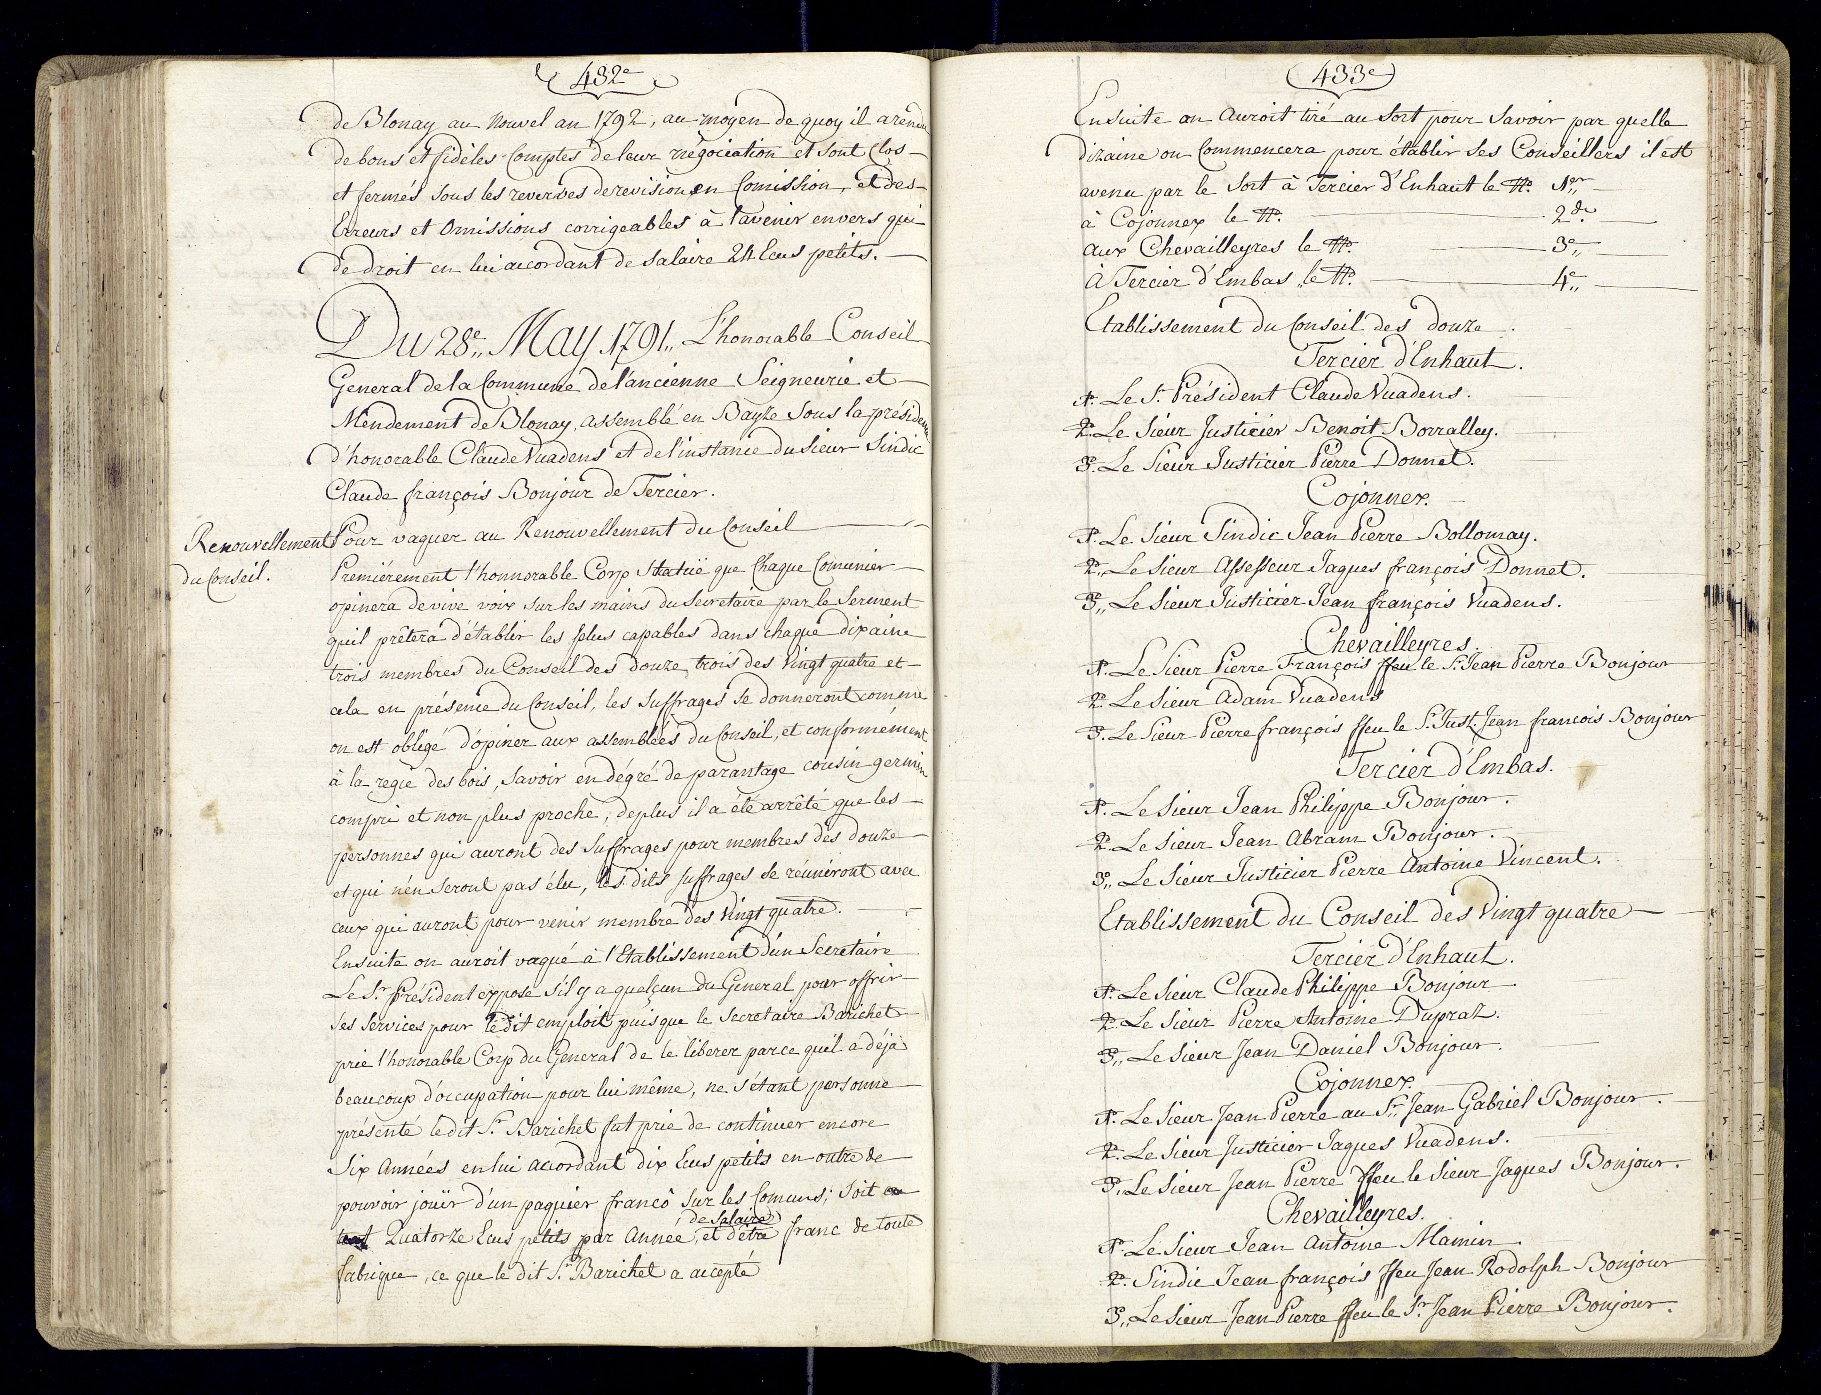 432e
de Blonay au Nouvel an 1792, au moyen de quoy il a rendu
de bons et fidèles Comptes de leur négociation et sont Clos
et fermés sous les reverses de revision en Comission, et des
Erreurs et Omissions corrigeables à l'avenir envers qui
de droit en lui accordant de salaire 24 Ecus petits.
Du 28e,, May 1791,, L'honorable Conseil
General de la Commune de l'ancienne Seigneurie et
Mendement de Blonay, assemblé en Bayze sous la présidence
d'honorable Claude Vuadens et de l'instance du Sieur Sindic
Claude françois Bonjour de Tercier.
Renouvellement
du Conseil.
Pour vaquer au Renouvellement du Conseil
Premiérement l'honnorable Corp Statüe que Chaque Comunier
opinera de vive voix sur les mains du Secretaire par le Serment
quil prêtera d'établir les plus capables dans chaque dixaine
trois membres du Conseil des douze, trois des Vingt quatre et
cela en présence du Conseil, les Suffrages se donneront comme
on est obligé d'opiner aux assemblées du Conseil, et conformément
à la regie des bois, Savoir en dégré de parantage cousin germin
compri et non plus proche, deplus il a été arrêté que les
personnes qui auront des Suffrages pour membres des douze
et qui n'en seront pas élu, les dits suffrages se réuniront avec
ceux qui auront pour venir membre des Vingt quatre.
Ensuite on auroit vaqué à l'Etablissement d'un Secretaire
Le Sr. Président expose s'il y a quelqun du General pour offrir
ses services pour le dit emploit puisque le Secretaire Barichet
prie l'honorable Corp du General de le liberer parce quil a déja
beaucoup d'occupation pour lui même, ne s'étant personne
présenté le dit Sr. Barichet fut prié de continuer encore
Six Années en lui accordant dix Ecus petits en outre de
pouvoir joüir d'un paquier franco sur les Comuns; Soit
de Salaire
Quatorze Ecus petits par Année, et d'être franc de toute
fabrique, ce que le dit Sr. Barichet a accepté
433e
Ensuite on auroit tiré au Sort pour Savoir par quelle
dizaine on Commencera pour établir ses Conseillers il est
avenu par le Sort à Tercier d'Enhaut le No. 1er,,
à Cojonnex le No. 2de,,
aux Chevailleyres le No. 3e,,
à Tercier d'Embas,, le No. 4e,,
Etablissement du Conseil des douze.
Tercier d'Enhaut.
1o. Le Sr. Président Claude Vuadens.
2o. Le Sieur Justicier Benoit Borralley.
3o. Le Sieur Justicier Pierre Donnet.
Cojonnex.
1o. Le Sieur Sindic Jean Pierre Bollomay.
2o,, Le Sieur Assesseur Jaques françois Donnet.
3o,, Le Sieur Justicier Jean françois Vuadens.
Chevailleyres
1o. Le Sieur Pierre François ffeu le Sr. Jean Pierre Bonjour
2o. Le Sieur Adam Vuadens
3o. Le Sieur Pierre françois ffeu le Sr. Just. Jean francois Bonjour
Tercier d'Embas.
1o. Le Sieur Jean Philippe Bonjour.
2o. Le Sieur Jean Abram Bonjour.
3o,, Le Sieur Justicier Pierre Antoine Vincent.
Etablissement du Conseil des Vingt quatre
Tercier d'Enhaut.
1o. Le Sieur Claude Philippe Bonjour
2o. Le Sieur Pierre Antoine Dupraz.
3o,, Le Sieur Jean Daniel Bonjour.
Cojonnex.
1o. Le Sieur Jean Pierre au Sr. Jean Gabriel Bonjour.
2o. Le Sieur Justicier Jaques Vuadens.
3o,, Le Sieur Jean Pierre ffeu le Sieur Jaques Bonjour.
Chevailleyres.
1o. Le Sieur Jean Antoine Mamin
2o. Sindic Jean françois ffeu Jean Rodolph Bonjour
3o,, Le Sieur Jean Pierre ffeu le Sr. Jean Pierre Bonjour.